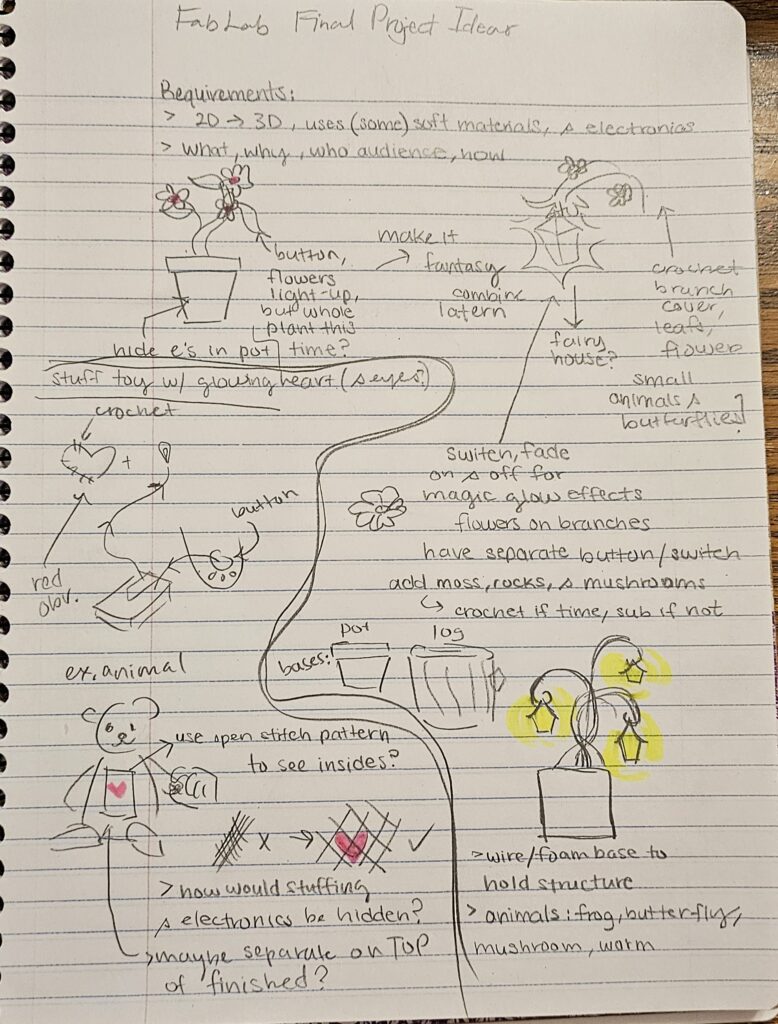 FabLab Final Project Ideas
Requirements:
> 2D → 3D, uses (some) soft materials, & electronics
> what, why, who audience, how
button,
flowers
light-up,
but whole
plant this
time?
hide e's in pot
make it
fantasy
combine
latern
fairy
house?
crochet
branch
cover,
leafs,
flower
small
animals &
butterflies
switch, fade
on & off for
magic glow effects
flowers on branches
have separate button/switch
add moss, rocks, & mushrooms
↳ crochet if time, sub if not
bases:
pot
log
>wire/foam base to
hold structure
> animals: frog, butterfly,
mushroom, worm
stuff toy w/ glowing heart (& eyes?)
crochet
+
button
red
obv.
ex. animal
use open stitch pattern
to see insides?
x → ✓
> how would stuffing
& electronics be hidden?
>maybe separate on TOP
of finished?